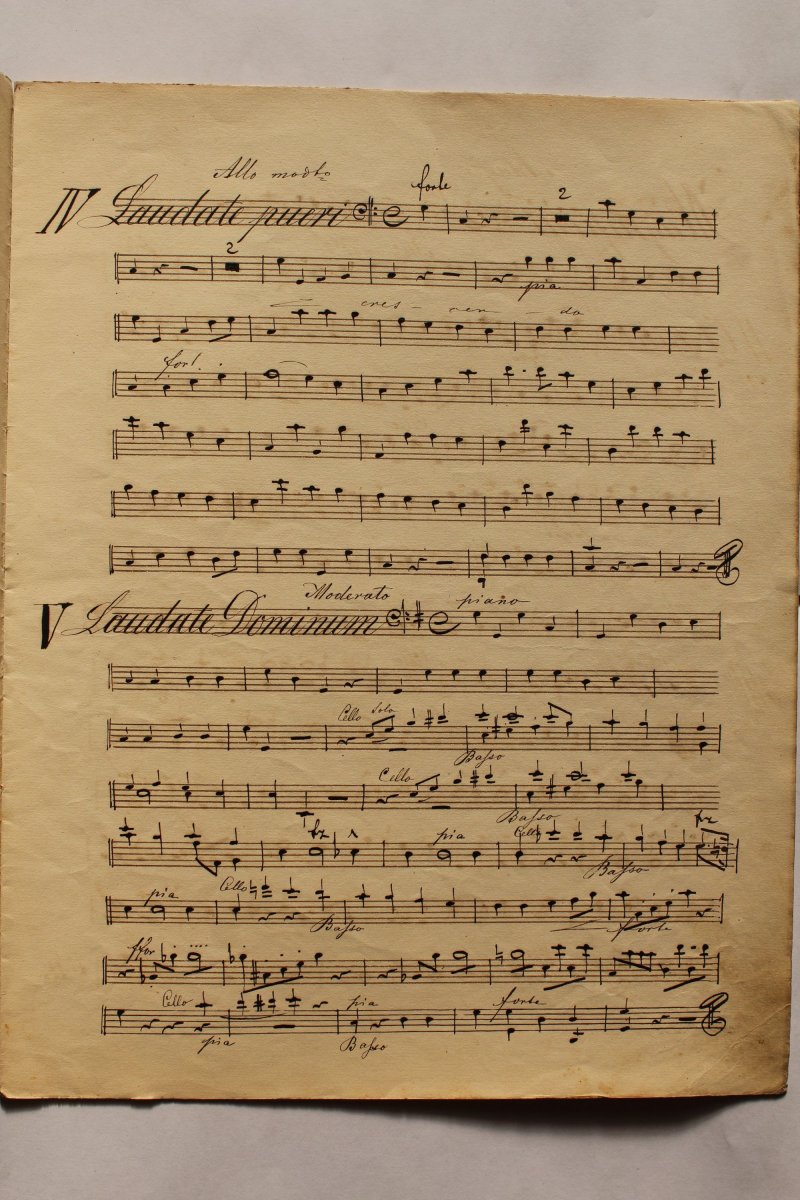 Allo modto
forte
IV Laudate pueri
2
2
pia
cres - cen - do
for.
Moderato piano
V Laudate Dominum
Cello Solo
Basso
Cello
Basso
fz fz
pia Cello
Basso
pia Cello
Basso forte
ffor
Cello pia forte
pia Basso